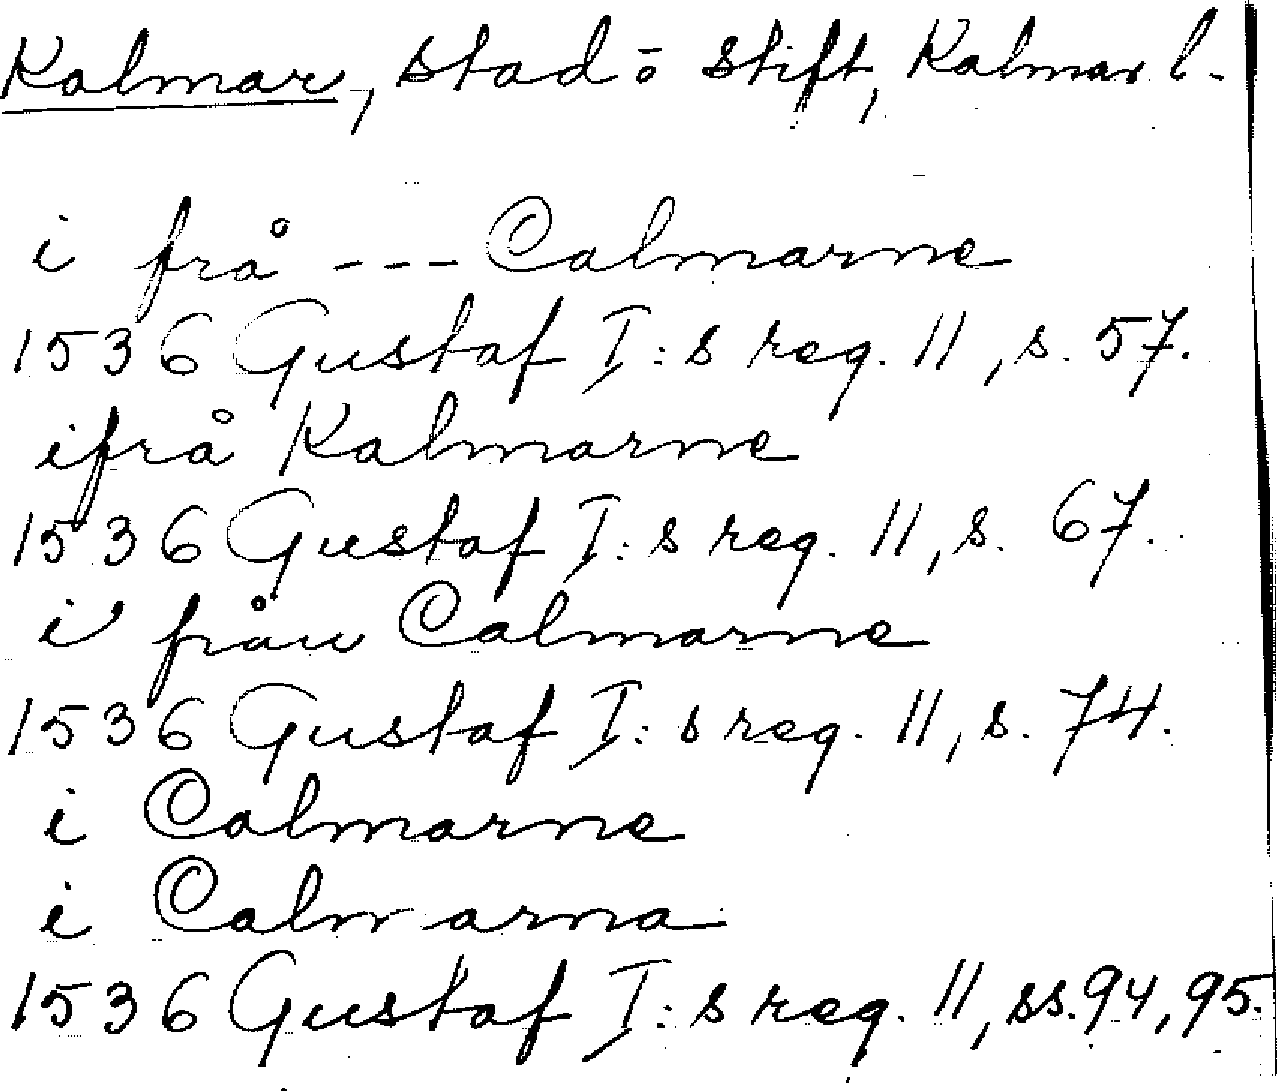 Kalmar, stad o stift, Kalmar l.
i frå --- Calmarne
1536 Gustaf I:s reg. 11, s. 57.
ifrå Kalmarne
1536 Gustaf I:s reg. 11, s. 67.
i från Calmarne
1536 Gustaf I:s reg. 11, s. 74.
i Calmarne
i Calmarna
1536 Gustaf I:s reg. 11, ss. 94, 95.